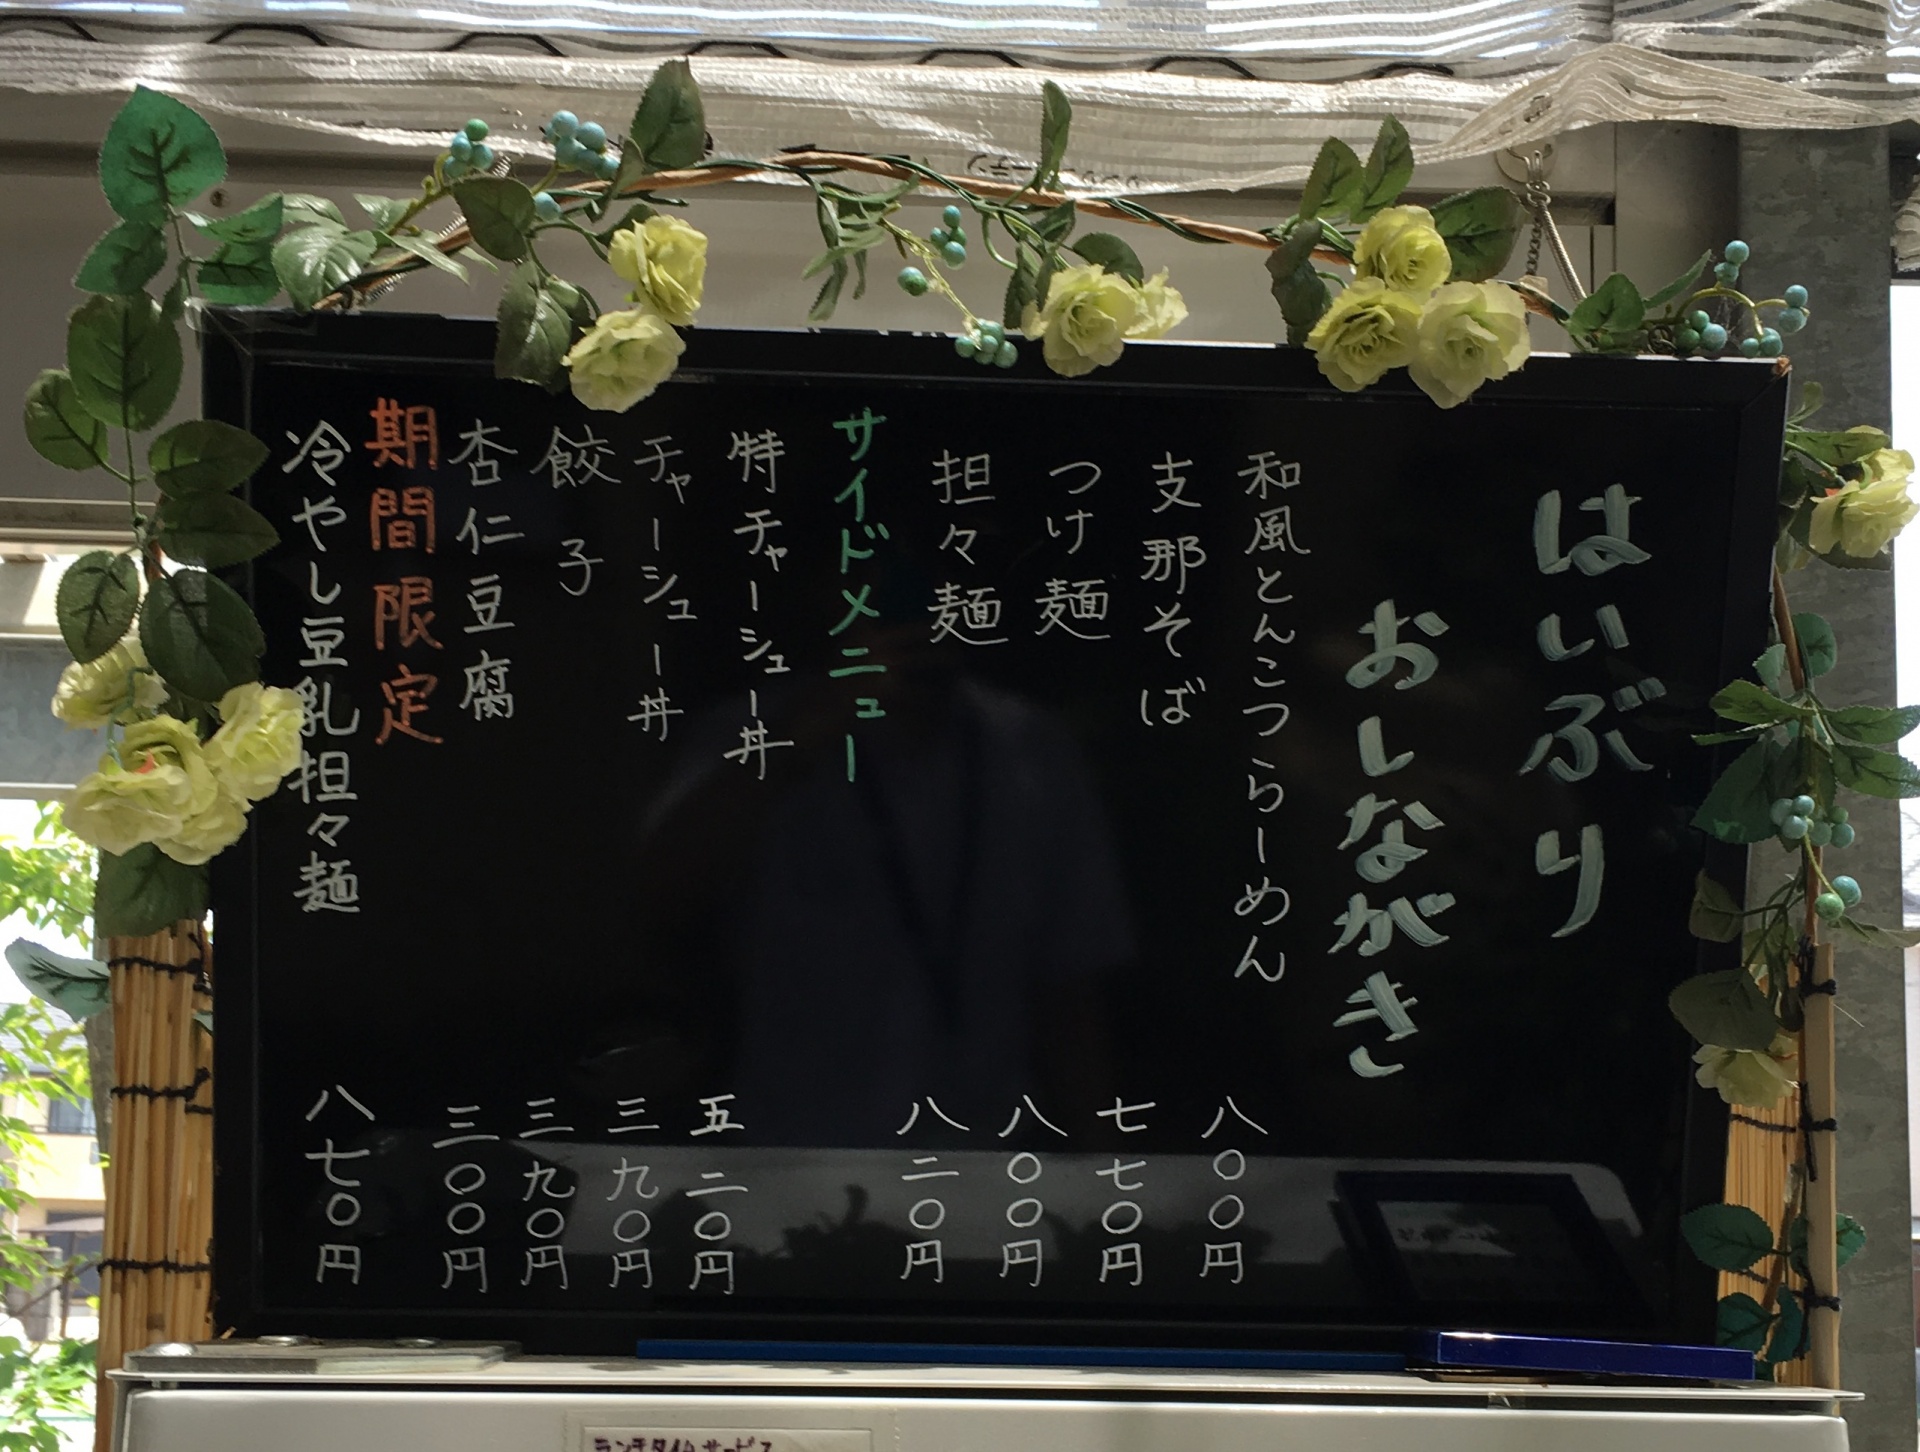 はいぶり
おしながき
和風とんこつらーめん 八〇〇円
支那そば 七七〇円
つけ麺 八〇〇円
担々麺 八二〇円
サイドメニュー
特チャーシュー丼 五二〇円
チャーシュー丼 三九〇円
餃子 三九〇円
杏仁豆腐 三〇〇円
期間限定
冷やし豆乳担々麺 八七〇円
ランチタイムサービス